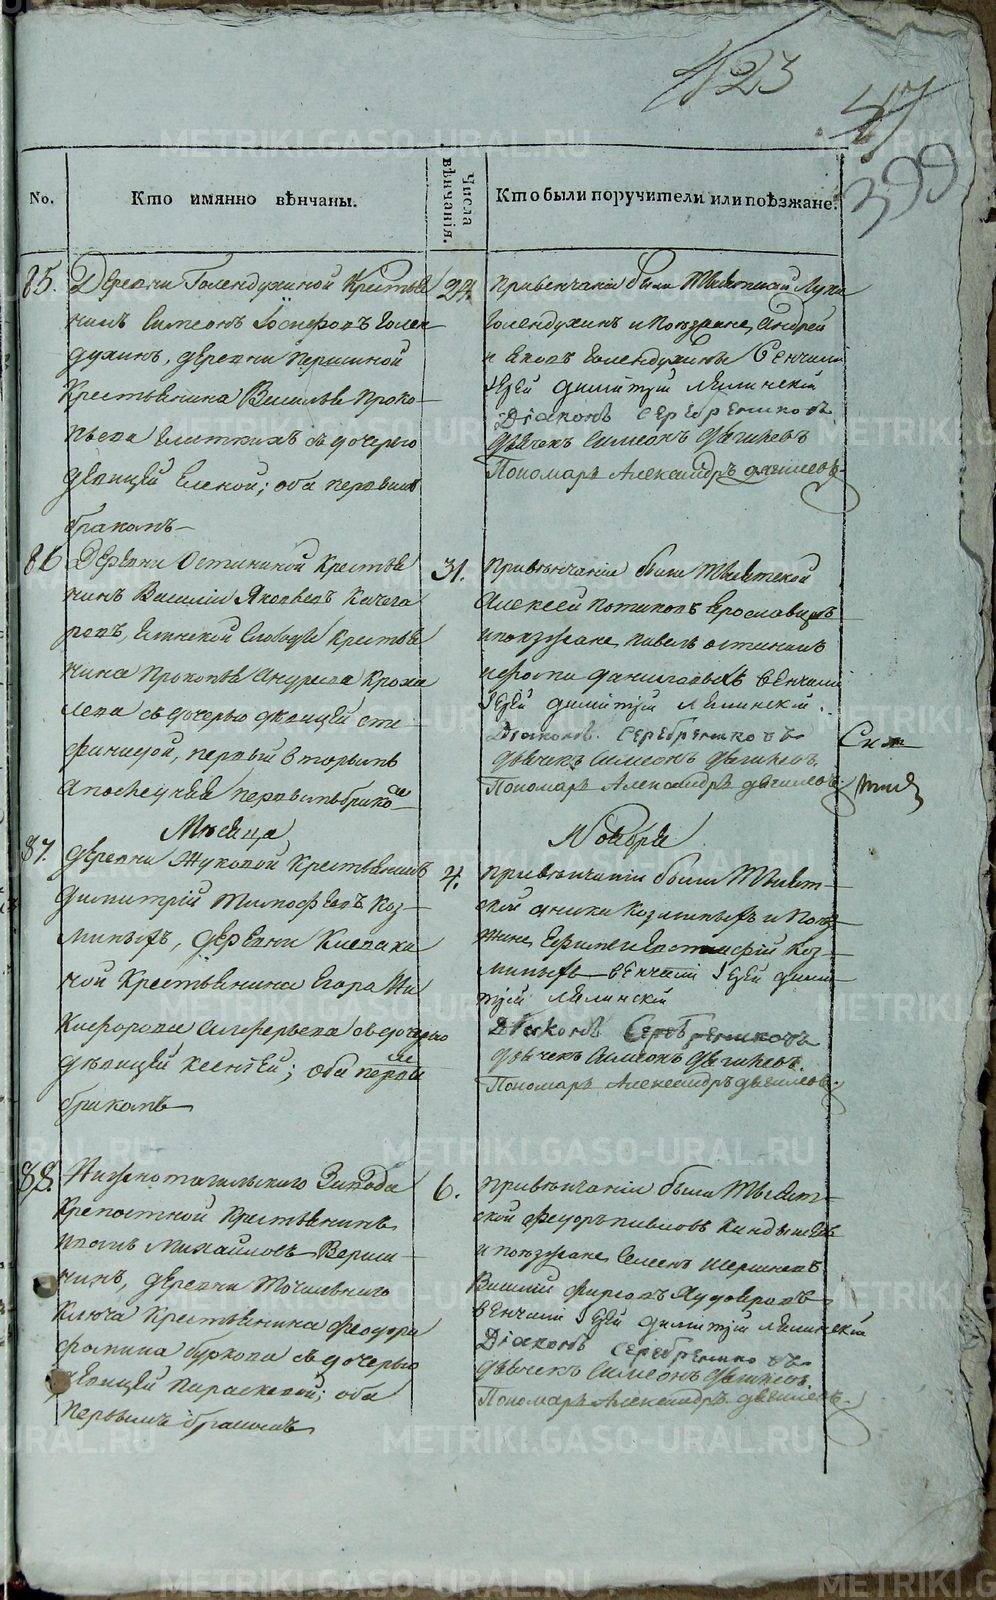 123
47
399
No.
Кто имянно вѣнчаны.
Числа вѣнчанія.
Кто были поручители или поѣзжане.
85. Деревни Голендухиной Крестья
нинъ Симеонъ Іосифовъ Голен
духинъ, деревни Першиной
Крестьянина Василья Проко-
пьева съ дочерью
девицей Еленой; оба первымъ
бракомъ
24.
Привенчаніи были Тысяцкай Лука
Голендухинъ и Поезжане Андрей
и Яковъ Голендухины Венчали
Іерей Димитрій Лепинскій
Діаконъ Серебрениковъ
Дьячекъ Симеонъ Дягилевъ
Пономарь Александръ Дягилевъ
86 Деревни Остининой Крестья
нинъ Василій Яковлевъ Качега
ровъ, Слободы Крестья
нина Прокопья Андреева Кроха
лева съ дочерью девицей Сте
фанидой, первый вторымъ
а последняя первымъ бракомъ
31.
Привѣнчаніи были Тысятской
Алексей Ерославцовъ
и поезжане Павелъ Остининъ
Даниловыхъ Венчали
Іерей Димитрій Лепинскій
Діаконъ Серебрениковъ
Дьячекъ Симеонъ Дягилевъ
Пономарь Александръ Дягилевъ
Мѣсяца
Ноября
87. Деревни Жуковой Крестьянинъ
Димитрій Тимофеевъ Коз-
миныхъ, деревни Клевакиной
ной Крестьянина Егора Ни
Кифорова Алферьева съ дочерью
дѣвицей Ксеніей; оба первы
бракомъ
4.
Привѣнчаніи были Тысят-
ской Козминыхъ и Поез
жане Ефимъ и Евстафій Коз-
миныхъ венчали Іерей Дими
трій Лепинскій
Діаконъ Серебрениковъ
Дьячекъ Симеонъ Дягилевъ.
Пономарь Александръ Дягилевъ
88. Нижнотагильскаго Завода
Крепостной Крестьянинъ
Иванъ Михайловъ Верши-
нинъ, деревни Точильнаго
Ключа Крестьянина Феодора
Фомина Буркова съ дочерью
девицей Параскевой; оба
первымъ бракомъ
6.
Привѣнчаніи были Тысят-
ской Федоръ Павловъ
и поезжане Семенъ
Василій Фирсовъ Худояровъ
венчали Іерей Димитрій Лепинскій
Діаконъ Серебрениковъ
Дьячекъ Симеонъ Дягилевъ
Пономарь Александръ Дягилевъ
METRIKI.GASO-URAL.RU